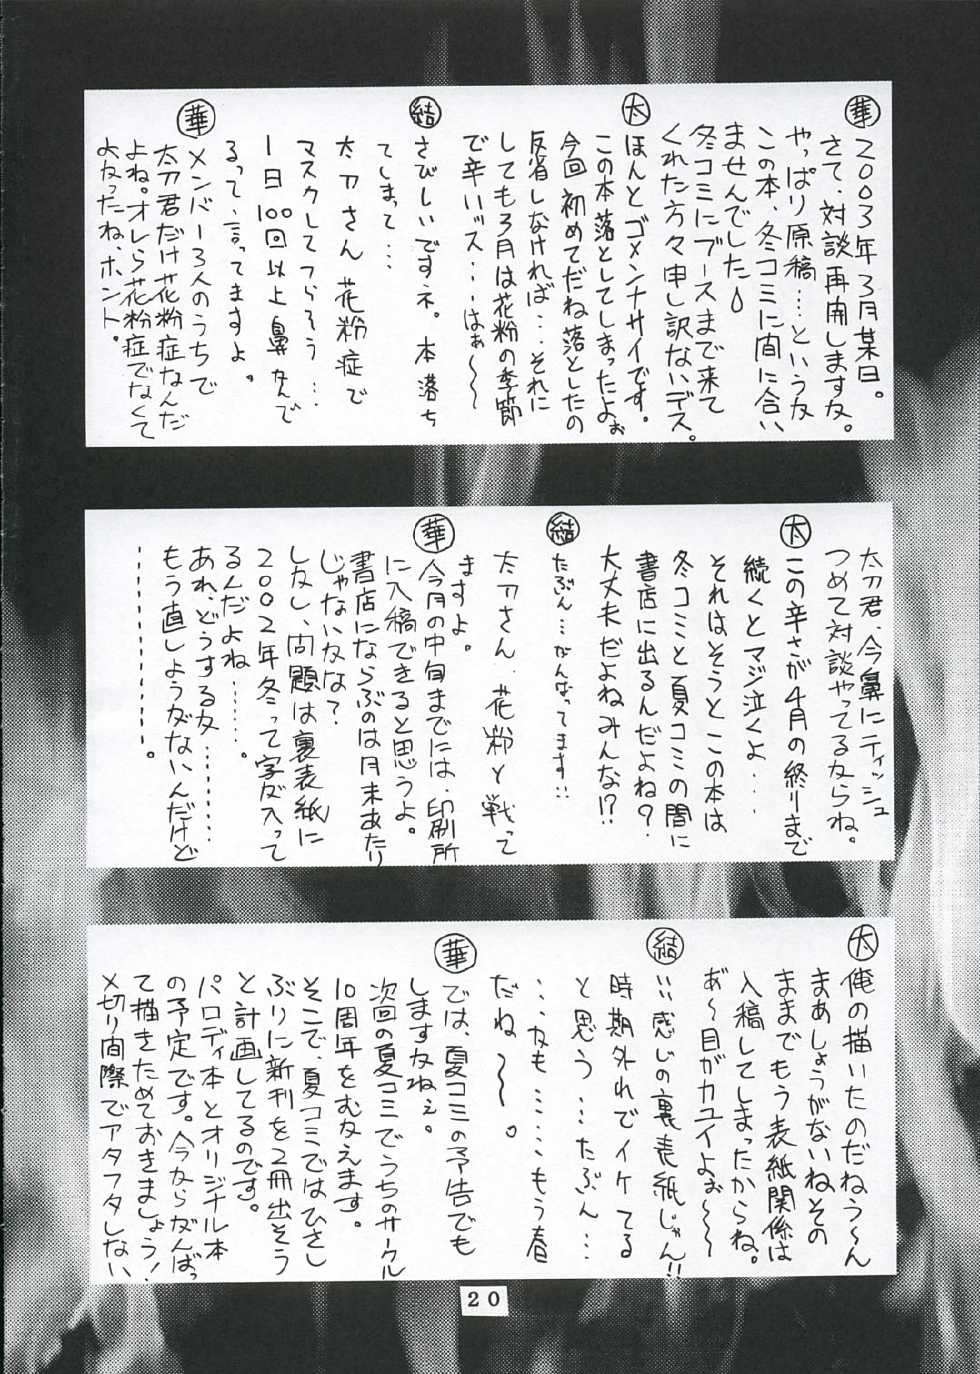 華 2003年3月某日。
さて、対談再開しますな。
やっぱり原稿…というな
この本、冬コミに間に合い
ませんでした
冬コミにブースまで来て
くれた方々申し訳ないデス。
太 ほんとゴメンナサイです。
この本落としてしまったよぉ
今回初めてだね落としたの
反省しなければ…それに
しても3月は花粉の季節
で辛いッス…はぁ〜〜
結 さびしいですネ。本落ち
てしまって…
太刀さん 花粉症で
マスクしてつらそう…
1日100回以上鼻かんで
るって、言ってますよ。
華 メンバー3人のうちで
太刀君だけ花粉症なんだ
よね。オレら花粉症でなくて
よかったね、ホント。
太刀君、今鼻にティッシュ
つめて対談やってるからね。
太 この辛さが4月の終りまで
続くとマジ泣くよ…
それはそうとこの本は
冬コミと夏コミの間に
書店に出るんだよね?
大丈夫だよねみんな!?
結 たぶん…がんばってます!!
太刀さん、花粉と戦って
ますよ。
華 今月の中旬までには、印刷所
に入稿できると思うよ。
書店にならぶのは月末あたり
じゃないかな?
しかし、問題は裏表紙に
2002年冬って字が入って
るんだよね……。
あれ、どうするな………
もう直しようがないんだけど
…………。
太 俺の描いたのだねう〜ん
まあしょうがないねその
ままでもう表紙関係は
入稿してしまったからね。
あ〜目がカユイよぉ〜〜
結 いい感じの裏表紙じゃん!!
時期外れでイケてる
と思う…たぶん…
…かも……もう春
だね〜〜。
華 では、夏コミの予告でも
しますかねぇ。
次回の夏コミでうちのサークル
10周年をむかえます。
そこで、夏コミではひさし
ぶりに新刊を2冊出そう
と計画してるのです。
パロディ本とオリジナル本
の予定です。今からがんばっ
て描きためておきましょう!
〆切り間際でアタフタしない
20